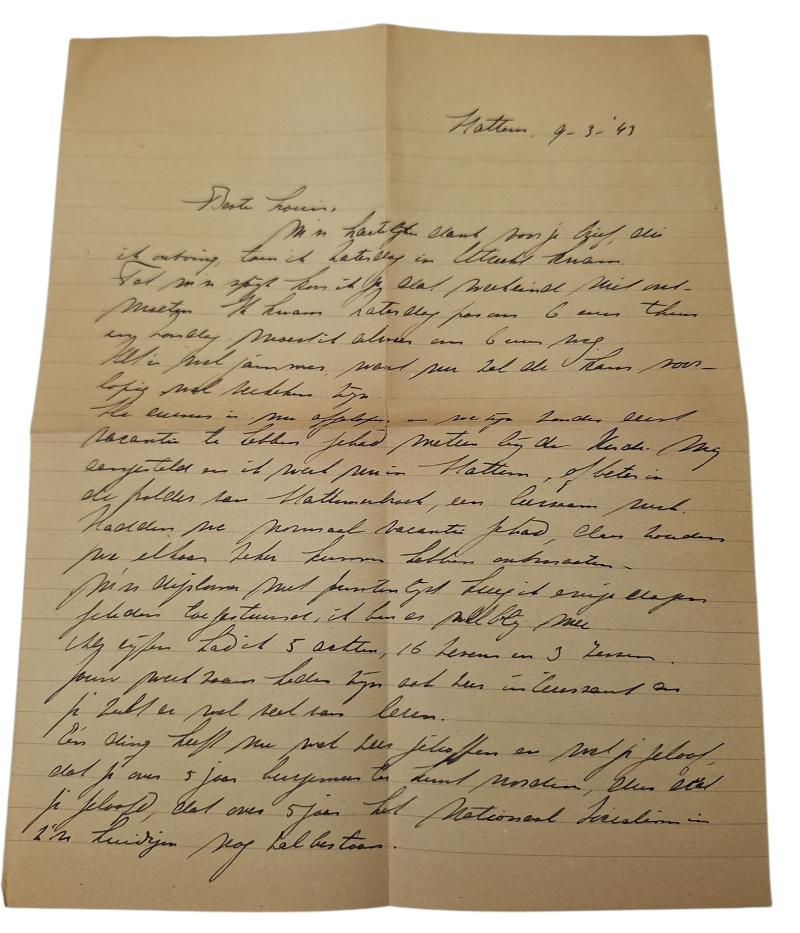 Hattem, 9-3-'43
Beste Louis,
M'n hartelijke dank voor je brief, die
ik ontving, toen ik Zaterdag in Utrecht kwam.
Tot m'n spijt kon ik je dat weekeind niet ont-
moeten. Ik kwam Zaterdag pas om 6 uur thuis
en Zondag moest ik alweer om 6 uur weg.
Het is wel jammer, want nu zal de kans voor-
lopig wel verkeken zijn.
De cursus is nu afgelopen en we zijn zonder eerst
vacantie te hebben gehad meteen bij de Heide Mij
aangesteld en ik werk nu in Hattem, of beter in
de polder van Hattemerbroek, een leerzaam werk.
Hadden we normaal vacantie gehad, dan zouden
we elkaar zeker kunnen hebben ontmoeten.
M'n diploma met puntenlijst kreeg ik enige dagen
geleden toegestuurd, ik ben er wel blij mee.
Als cijfers had ik 5 achten, 16 zevens en 3 zessen.
Jouw werkzaamheden zijn ook zeer interessant en
je zult er wel veel van leren.
Eén ding heeft me wel zeer getroffen en wel je geloof,
dat je over 5 jaar burgemeester kunt worden, dus dat
je gelooft, dat over 5 jaar het Nationaal Socialisme in
z'n huidigen nog zal bestaan.